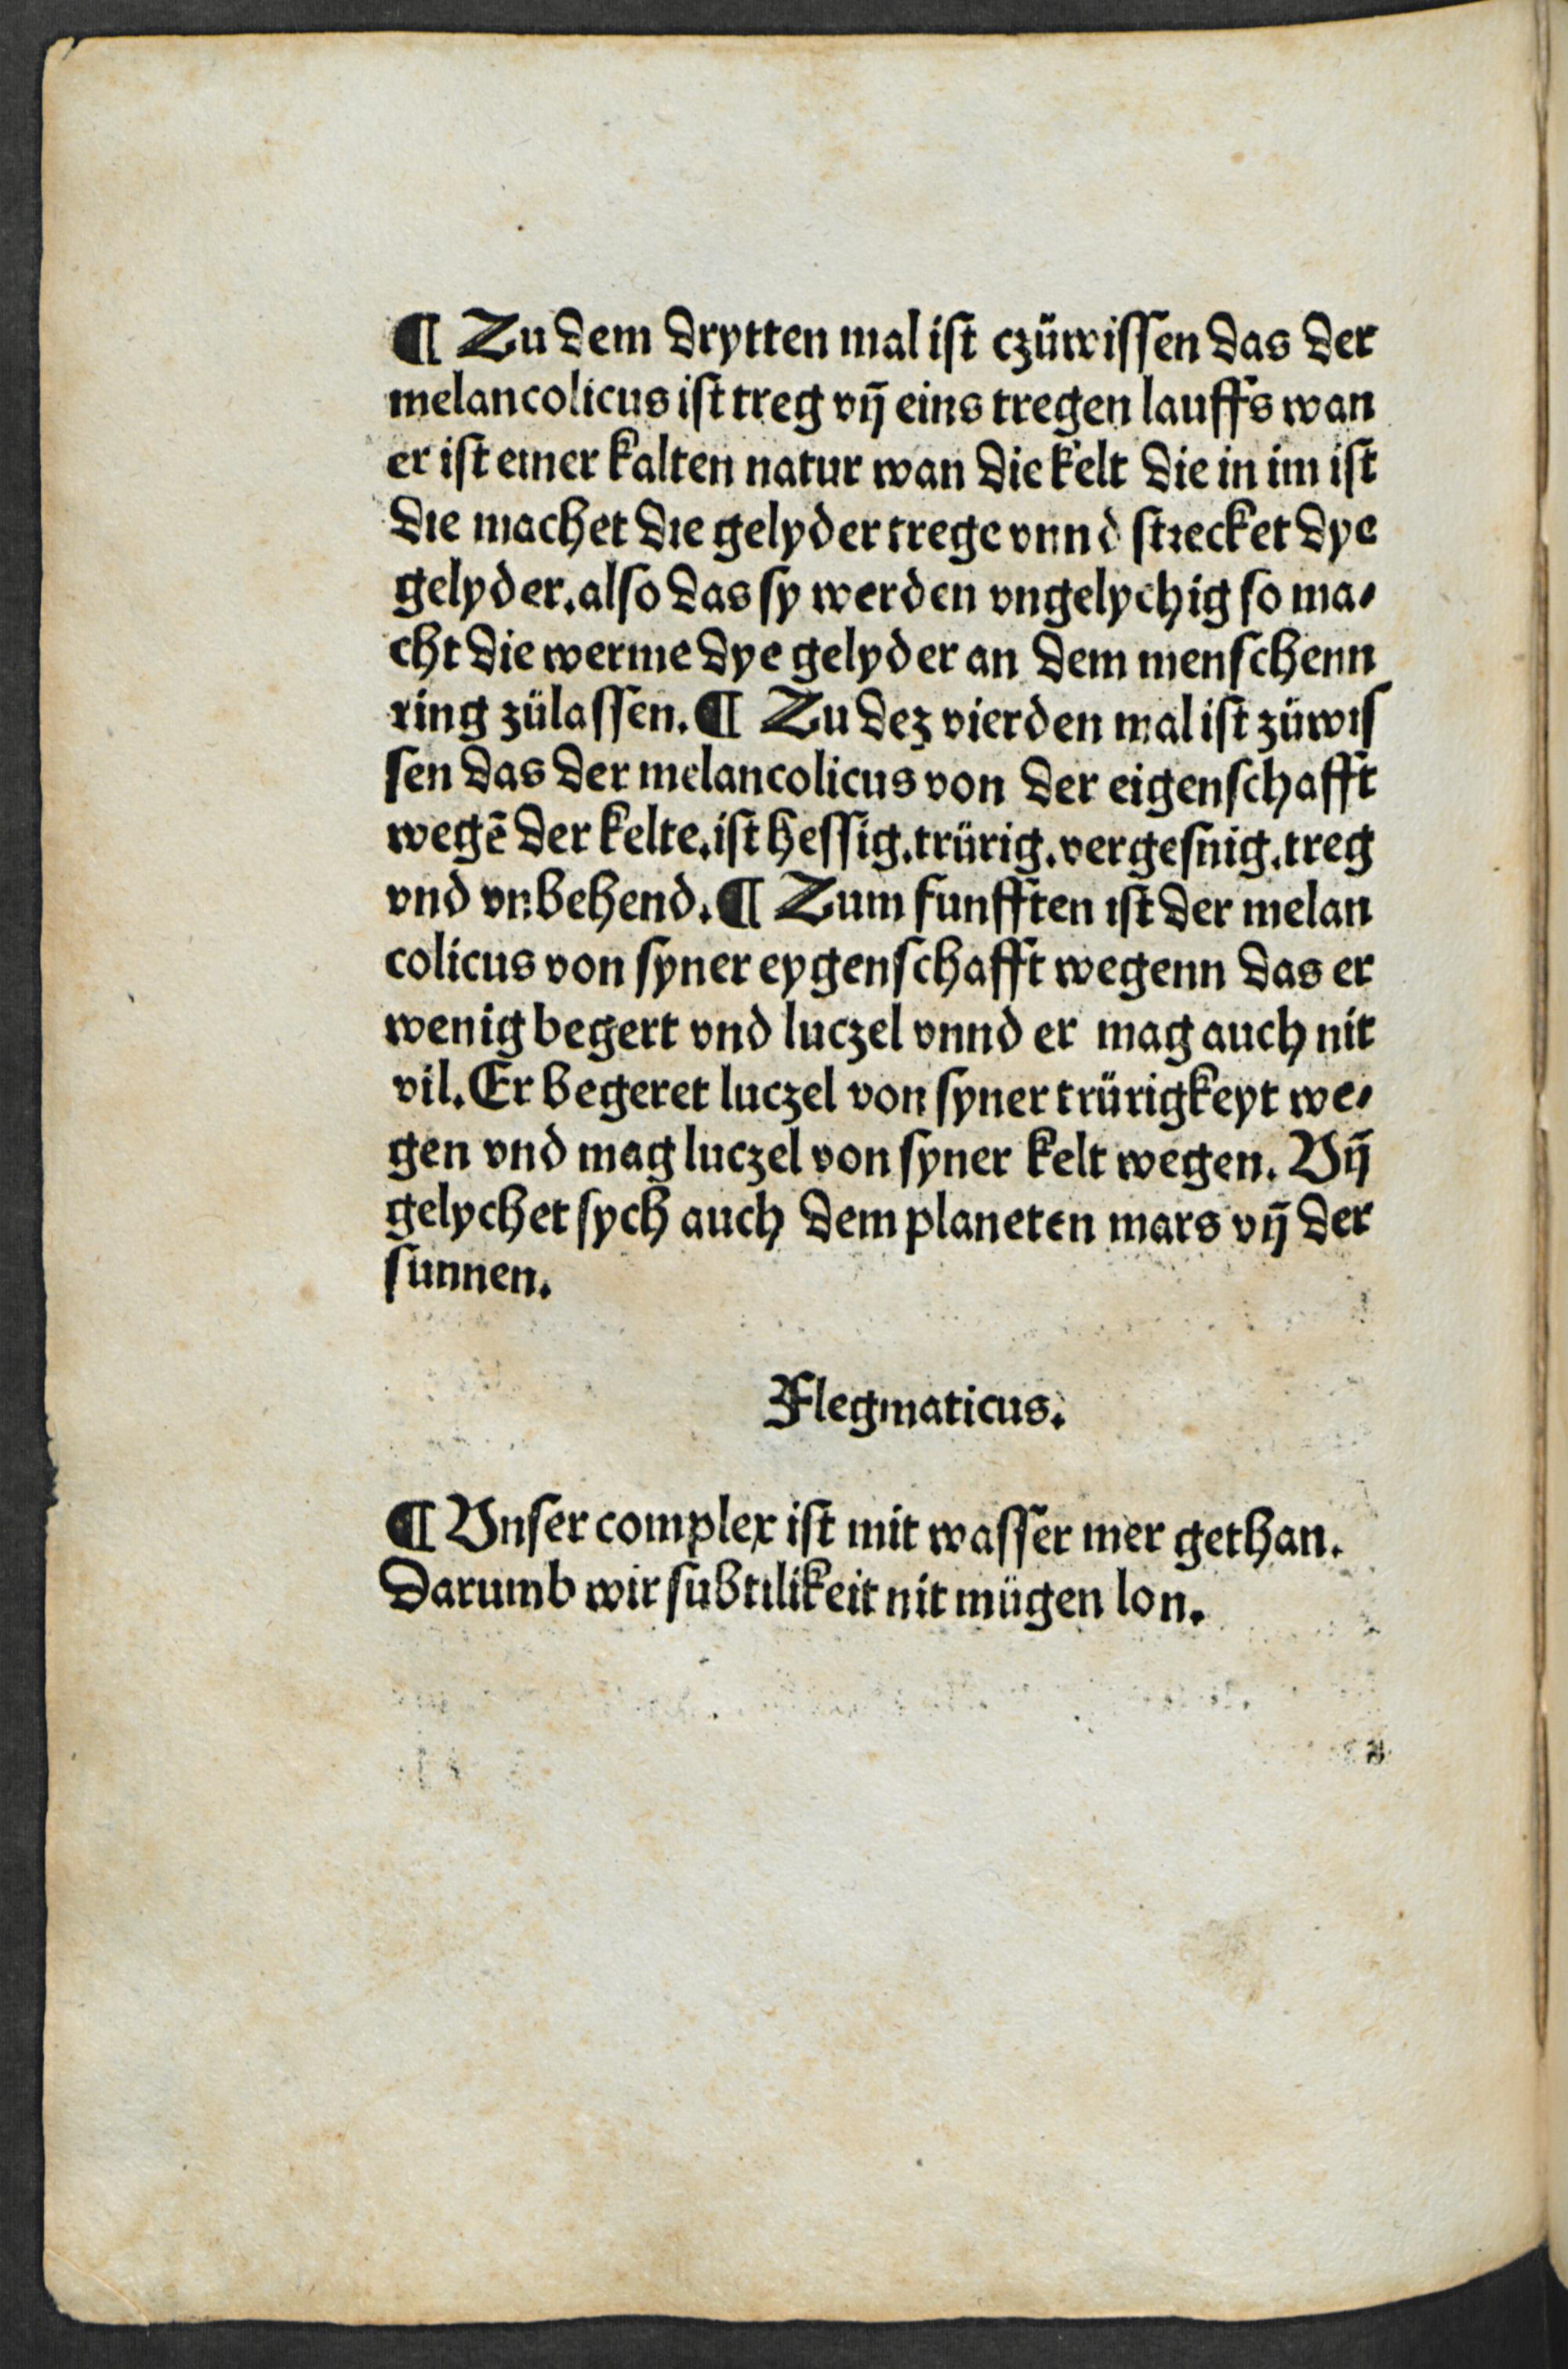 ¶ Zu dem drytten mal ist czüwissen das der
melancolicus ist treg vn̄ eins tregen lauffs wan
er ist einer kalten natur wan die kelt die in im ist
die machet die gelyder trege vnnd strecket dye
gelyder. also das sy werden vngelychig so ma⸗
cht die werme dye gelyder an dem menschenn
ring zülassen. ¶ Zu dez vierden mal ist züwis
sen das der melancolicus von der eigenschafft
wegē der kelte. ist hessig. trürig. vergesnig. treg
vnd vnbehend. ¶ Zum funfften ist der melan
colicus von syner eygenschafft wegenn das er
wenig begert vnd luczel vnnd er mag auch nit
vil. Er begeret luczel von syner trürigkeyt we⸗
gen vnd mag luczel von syner kelt wegen. Vn̄
gelychet sych auch dem planeten mars vn̄ der
sunnen.
Flegmaticus.
¶ Vnser complex ist mit wasser mer gethan.
Darumb wir subtilikeit nit mügen lon.